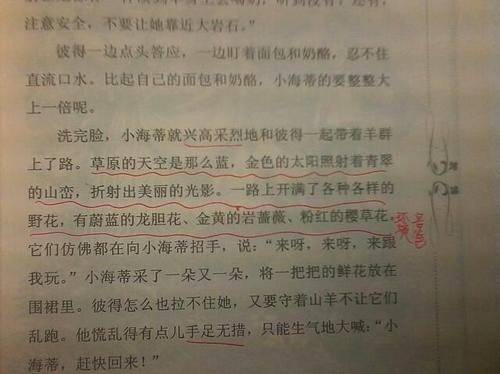 注意安全，不要让她靠近大岩石。”
彼得一边点头答应，一边盯着面包和奶酪，忍不住
直流口水。比起自己的面包和奶酪，小海蒂的要整整大
上一倍呢。
洗完脸，小海蒂就兴高采烈地和彼得一起带着羊群
上了路。草原的天空是那么蓝，金色的太阳照射着青翠
的山峦，折射出美丽的光影。一路上开满了各种各样的
野花，有蔚蓝的龙胆花、金黄的岩蔷薇、粉红的樱草花，
它们仿佛都在向小海蒂招手，说：“来呀，来呀，来跟
我玩。”小海蒂采了一朵又一朵，将一把把的鲜花放在
围裙里。彼得怎么也拉不住她，又要守着山羊不让它们
乱跑。他慌乱得有点儿手足无措，只能生气地大喊：“小
海蒂，赶快回来！”